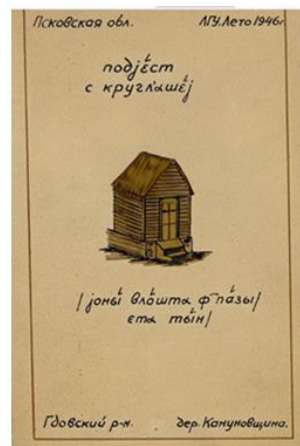 Псковская обл. ЛГУ. Лето 1946г
подjе́ст
с кругл'ашéj
/jоны́ вло́шта ф-па́зы/
ета ты́н/
Гдовский р-н. дер. Кануновщина.